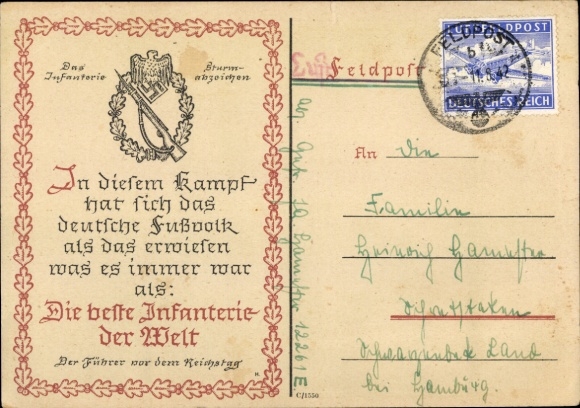 Das Infanterie
Sturm-abzeichen
In diesem Kampf
hat sich das
deutsche Fußvolk
als das erwiesen
was es immer war
als:
Die beste Infanterie
der Welt
Der Führer vor dem Reichstag
H.
C/1550
Luft
Feldpost
LUFTFELDPOST
DEUTSCHES REICH
FELDPOST
An die
Familie
Heinrich
Schwarzenbek Land
bei Hamburg.
12261 E